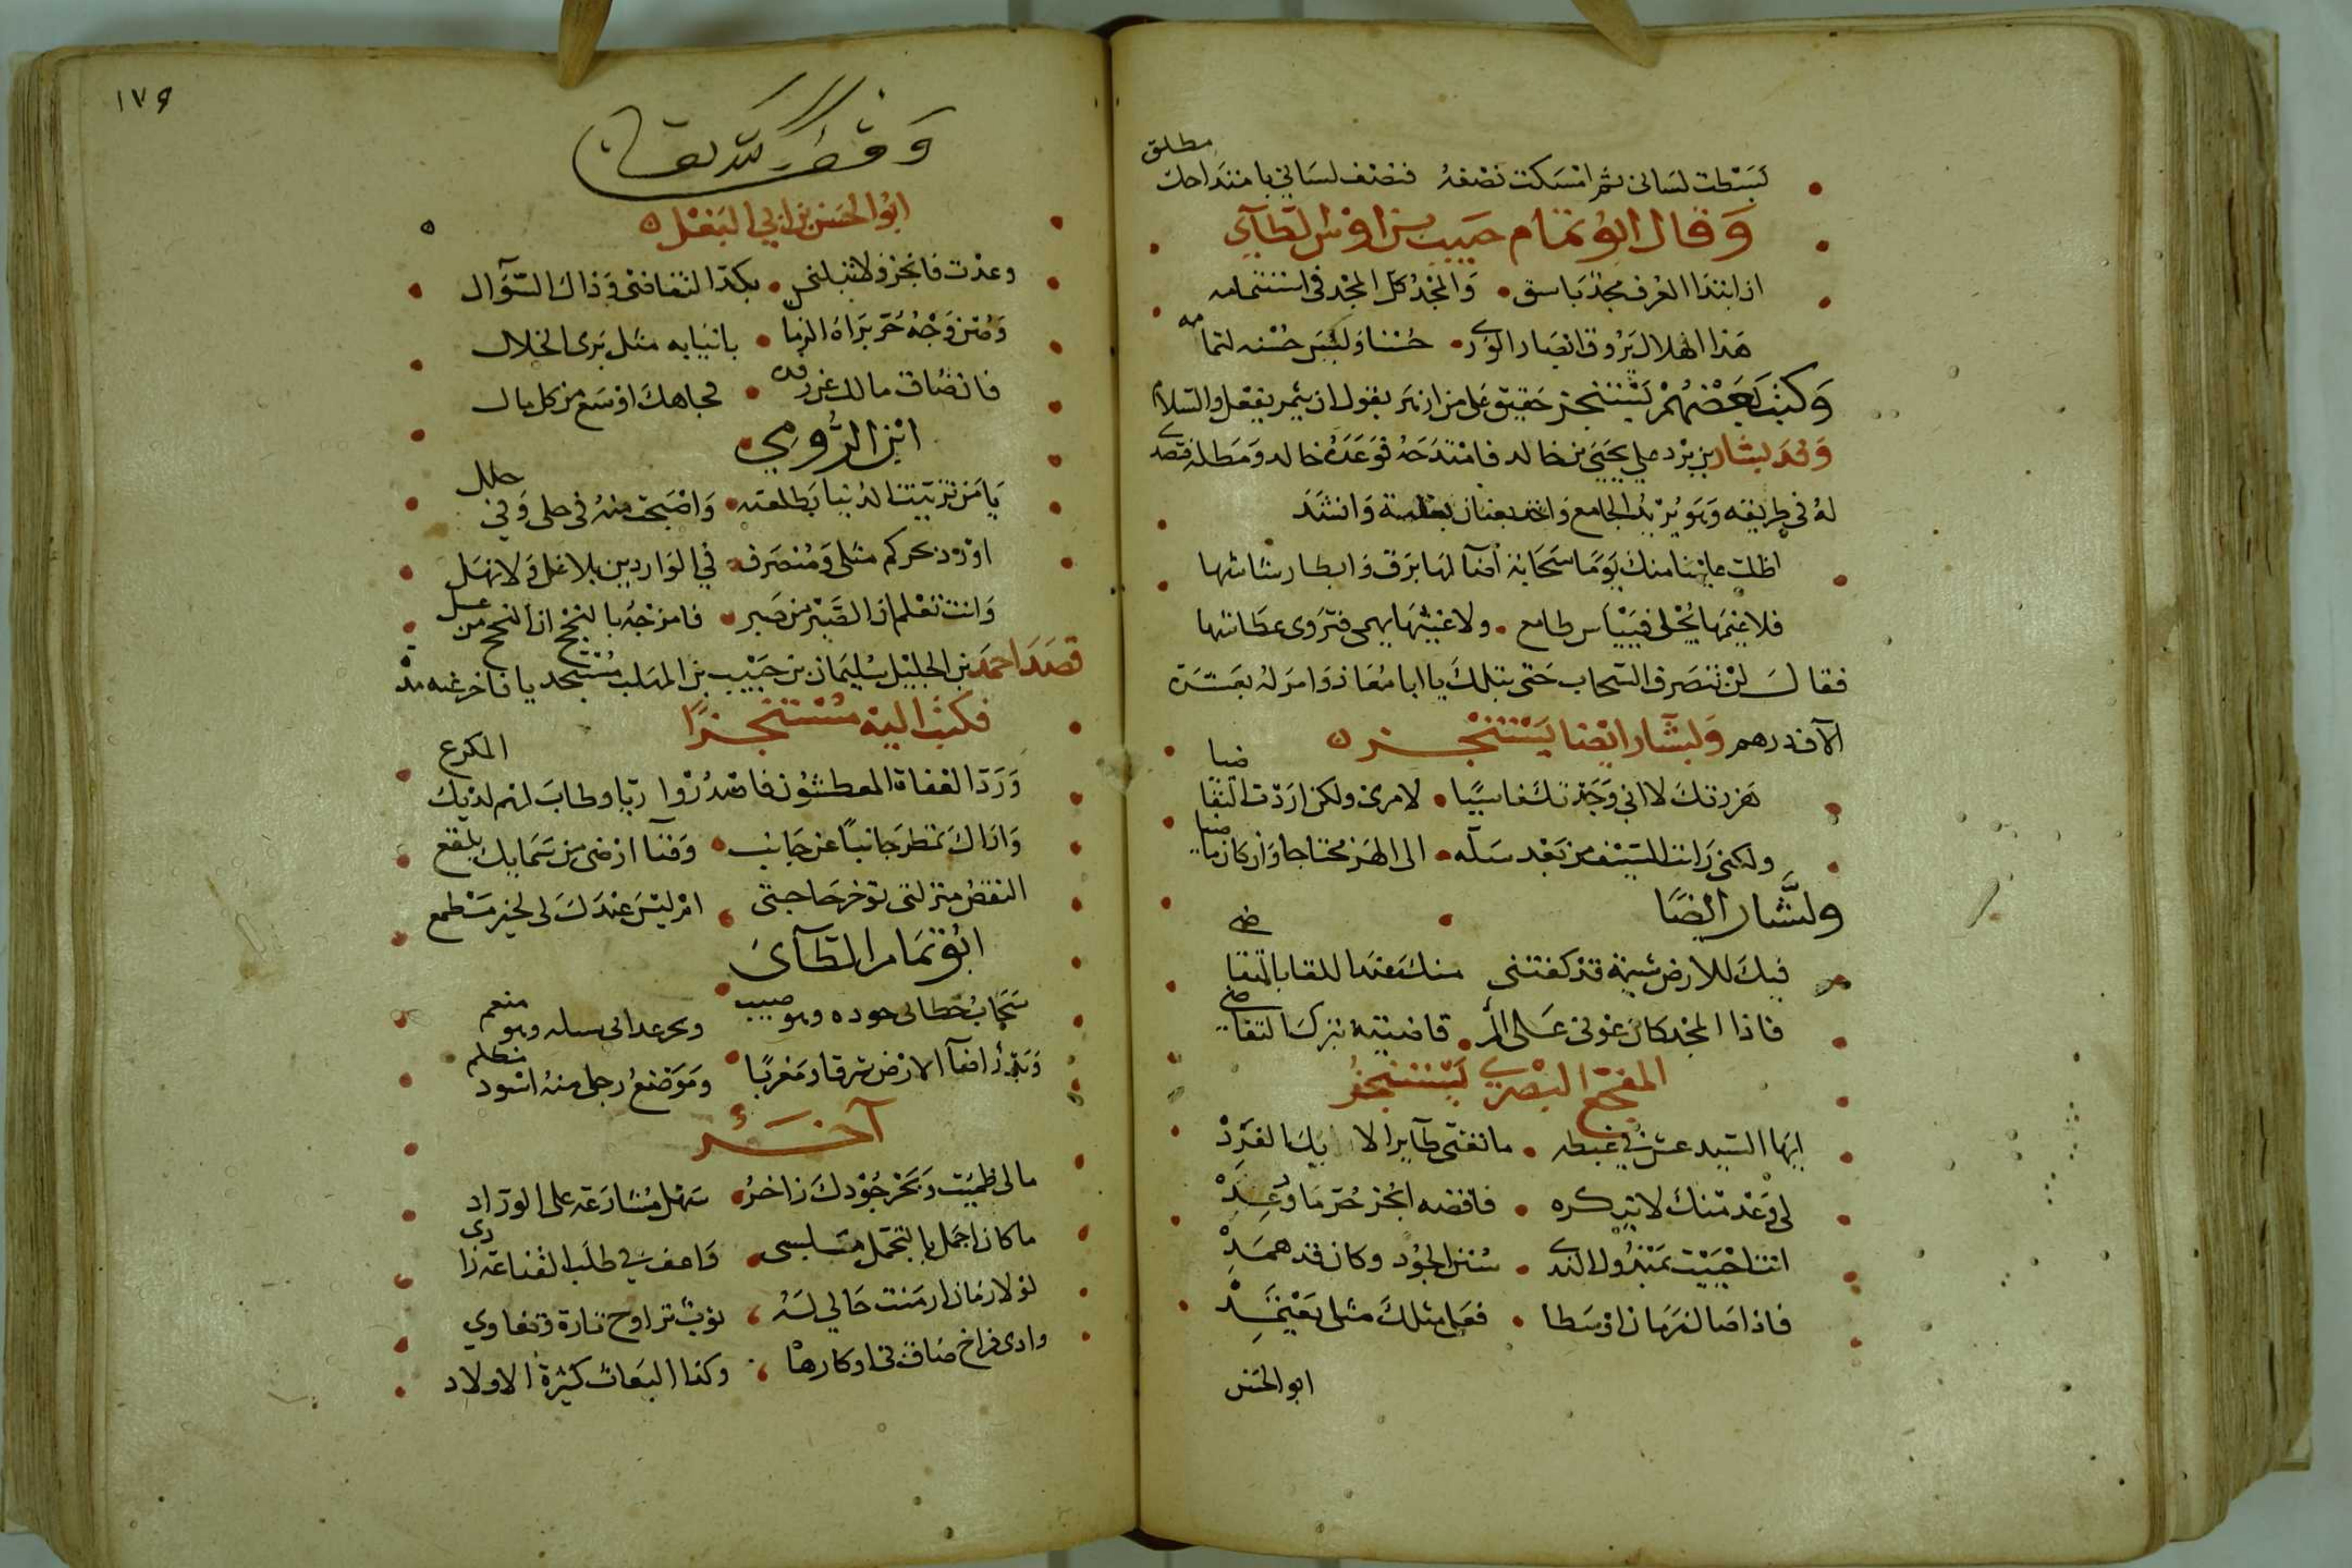 بسطت لساني ثم امسكت نصفه فنصف لساني بامتداحك مطلق
وقال ابو تمام حبيب بن اوس الطآي
ان ابتدا العرف مجد باسق والمجد كل المجد في استتمامه
هذا الهلال يروق ابصار الورى حسنا وليس حسنه لتمامه
وكتب بعضهم يستنجز حقيق على من ازهر بقول ان يثمر بفعل والسلام
وفد بشار بن برد على يحيى بن خالد فامتدحه فوعده خالد ومطله فتصدى
له في طريقه وهو يريد الجامع واخذ بعنان بغلته وانشد
اظلت علينا منك يوما سحابة اضآ لها برق وابطا رشاشها
فلا غيمها يجلى فييأس طامع ولا غيثها يهمى فتروى عطاشها
فقال لن تنصرف السحاب حتى تبلك يا ابا معاذ وامر له بعشرة
الآف درهم ولبشار ايضا يستنجز
هززتك لا اني وجدتك ناسيا لامري ولكن اردت التقاضيا
ولكن رايت السيف من بعد سله الى الهز محتاجا وان كان ماضيا
ولبشار ايضا
فيك للارض شيمة قد كفتني منك عند اللقا بالتقاضي
فاذا المجد كان عوني على المرء تقاضيته بترك التقاضي
المفجع البصري يستنجز
ايها السيد عش في غبطه ما تغنى طآير الايك الغرد
لي وعد منك لا تنكره فاقضه انجز حر ما وعد
انت احييت بمبذول الندى سنن الجود وكان قد همد
فاذا صال زمان او سطا فعلى مثلك مثلي يعتمد
ابو الحسن
١٧٩
وقف
ابو الحسن بن ابي البغل
وعدت فانجز ولا تبلني بكد التقاضي وذل السؤال
وصن وجه حر براه الزمان بانيابه مثل بري الخلال
فان ضاق مالك عن رفده فجاهك اوسع من كل مال
ابن الرومي
يا من تزينت الدنيا بطلعته واصبحت منه في حلي وفي حلل
اورد بحركم مثلي ومنصرف في الواردين بلا عل ولا نهل
وانت تعلم ان الصبر من صبر فامزجه بالنجح ان النجح من عسل
قصد احمد بن الجليل سليمان بن حبيب بن المهلب مستنجدا فاخر عنه
فكتب اليه مستنجزا
ورد العفاة المعطشون فاصدروا ريا وطاب لهم لديك المكرع
واراك تمطر جانبا عن جانب وفنآ ارضي من سمايك بلقع
النقض منزلتي تؤخر حاجتي ام ليس عندك لي لخير مطمع
ابو تمام الطآي
سحاب خطاني جوده وهو صيب وبحر عداني سيله وهو مفعم
وبدر اضآ الارض شرقا ومغربا وموضع رجلي منه اسود مظلم
آخر
مالي ظميت وبحر جودك زاخر سهل مشارعه على الوراد
ما كان اجمل بالتجمل ملبسي واعف في طلب القناعة زادي
لولا زمان ازمنت حالي له نوب تراوح تارة وتغادي
واذى فراخ ضاق بي اوكارها وكذا البغاث كثيرة الاولاد